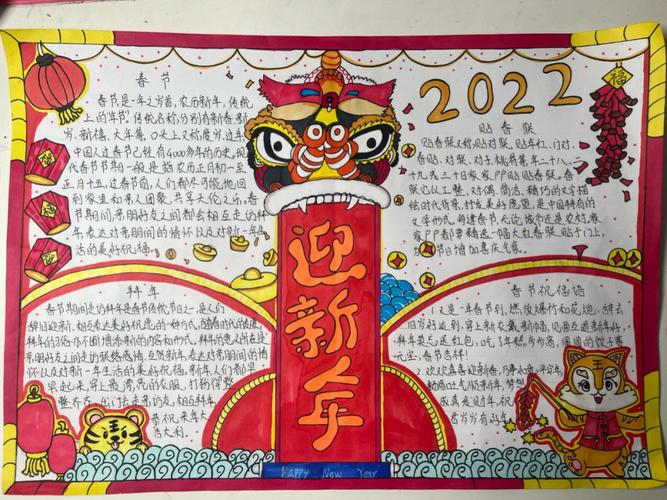 春节
春节是一年之岁首,农历新年,传统
上的年节。传统名称,分别有新春、新
岁、新禧、大年等,口头上又称度岁、过年
中国人过春节已经有4000多年的历史。现
代春节一般是指农历正月初一至
正月十五。过春节前,人们都尽可能地回
到家里和亲人团聚,共享天伦之乐。春
节期间,亲朋好友之间都会相互走访拜
年,表达对亲朋间的情怀以及对新一年生
活的美好祝福。
拜年
春节期间走访拜年是春节传统节日之一,是人们
辞旧迎新、相互表达美好祝愿的一种方式,随着时代的发展,
拜年的习俗亦不断增添新的内容和形式。拜年的意义所在是
亲朋好友之间走访联络感情、互贺新年,表达对亲朋间的情
怀以及对新一年生活的美好祝福。新年人们都早
早起来,穿上最漂亮的衣服,打扮得整
整齐齐,出门去走亲访友,相互拜年
恭祝来年大
吉大利。
迎新年
Happy New Year
2022
福
贴春联
贴春联又称贴对联、贴年红、门对、
春贴、对联、对子,
联它以工整、对偶、简洁、精巧的文字描
绘时代背景,抒发美好愿望,是中国特有的
文学形式。每逢春节,无论城市还是农村,家
家户户都要精选一幅大红春联贴于门上,
为节日增加喜庆气氛。
春节祝福语
1、又是一年春节到,燃放爆竹和花炮,辞去
旧岁好运到,穿上新衣戴新帽,见面互道新年好,
拜年走
元宝,春节吉祥!
2、欢欢喜喜迎新春,万事如意